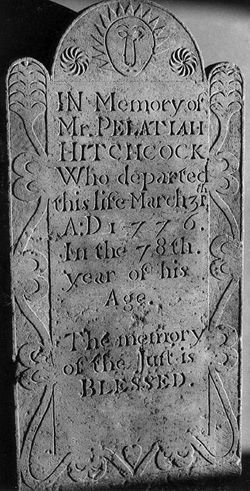 IN Memory of
Mr. PELATIAH
HITCHCOCK
Who departed
this life March 31th
A:D 1776.
In the 78th.
year of his
Age.
The memory
of the Just is
BLESSED.